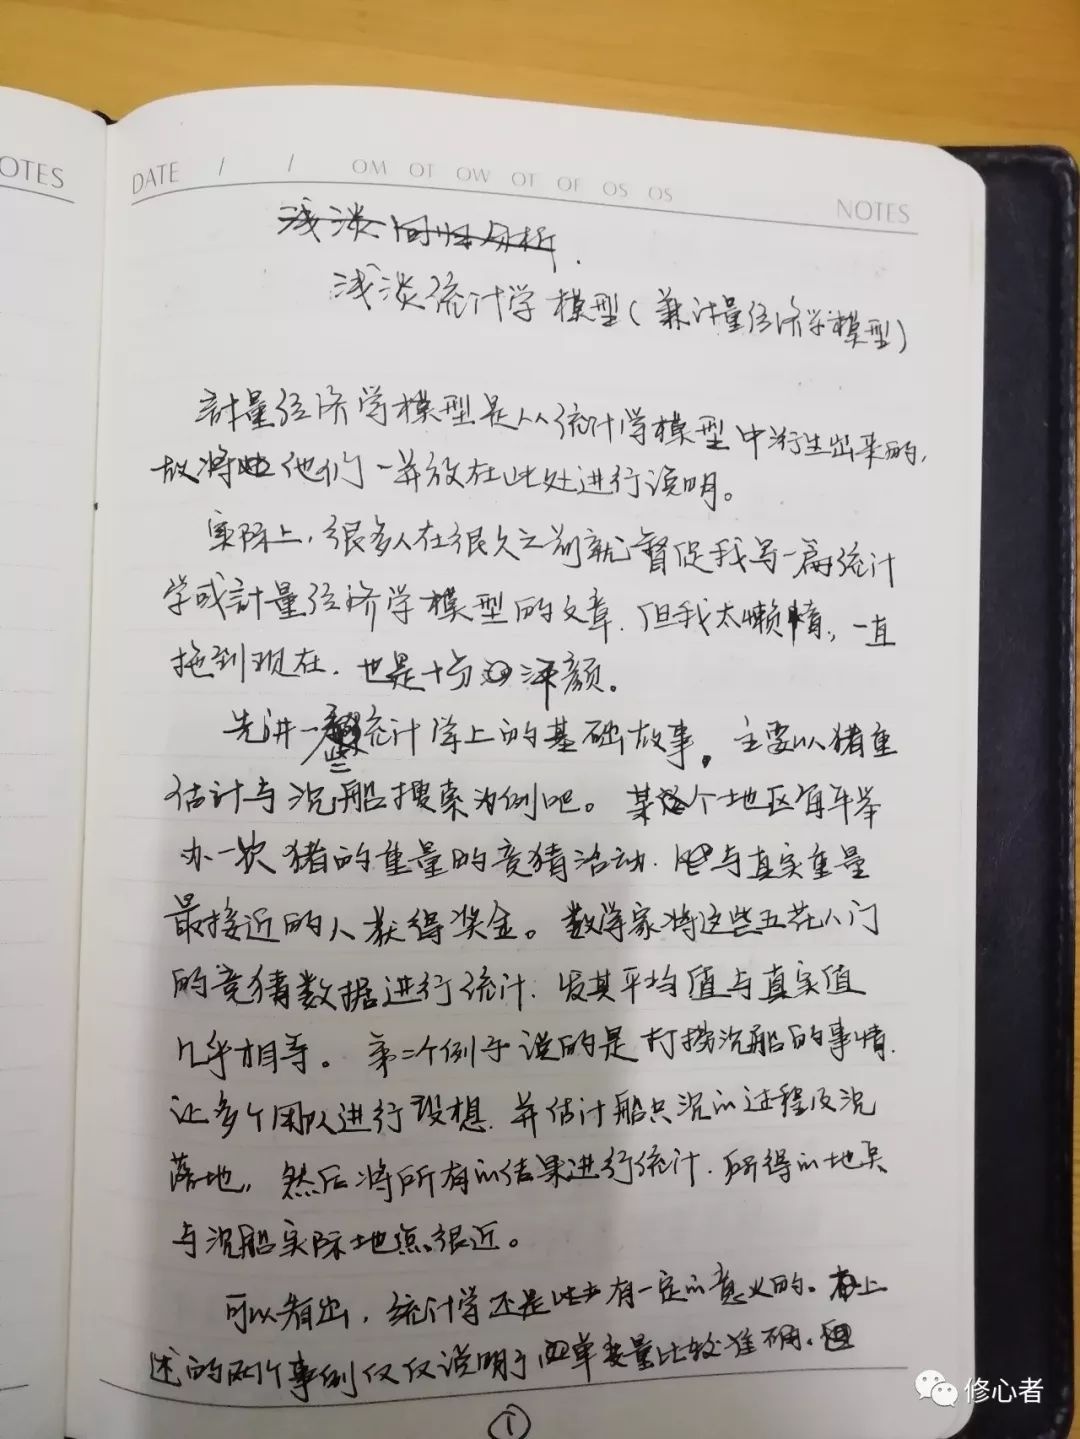 OTES
DATE / / OM OT OW OT OF OS OS
NOTES
浅谈回归分析.
浅谈统计学模型(兼计量经济学模型)
計量经济学模型是从统计学模型中衍生出来的,
故将他们一并放在此处进行说明。
实际上,很多人在很久之前就督促我写一篇统计
学或計量经济学模型的文章.但我太懒惰,一直
拖到现在.也是十分汗颜。
先讲一些统计学上的基础故事。主要以猪重
估计与沉船搜索为例吧。某个地区每年举
办一次猪的重量的竞猜活动.与真实重量
最接近的人获得奖金。数学家将这些五花八门
的竞猜数据进行统计.发其平均值与真实值
几乎相等。第二个例子说的是打捞沉船的事情.
让多个团队进行设想.并估计船只沉的过程及沉
落地,然后将所有的结果进行统计.所得的地点
与沉船实际地点很近。
可以看出,统计学还是有一定的意义的。上
述的两个事例仅仅说明了单变量比较准确.但
①
修心者